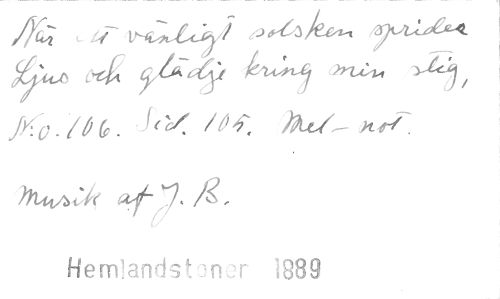 När ett vänligt solsken sprider
Ljus och glädje kring min stig,
N:o. 106. Sid. 105. Mel-not.
Musik af J. B.
Hemlandstoner 1889